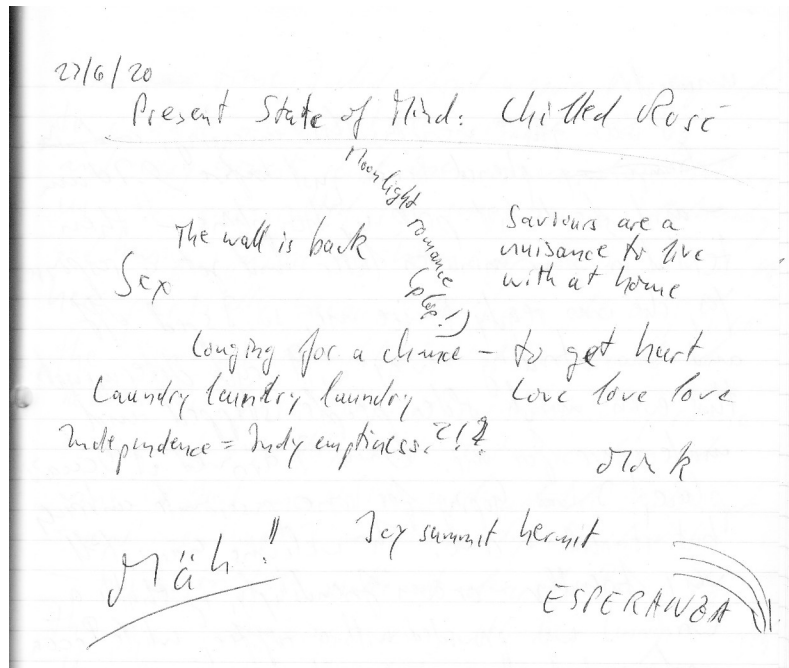 27/6/20
Present State of Mind: Chilled Rosé
Moonlight romance
(plop!)
The wall is back
Saviours are a
nuisance to live
with at home
Sex
Longing for a chance – to get hurt
Laundry laundry laundry
Love love love
Independence = Indyemptiness?!?
Mäh!
Icy summit hermit
ESPERANZA